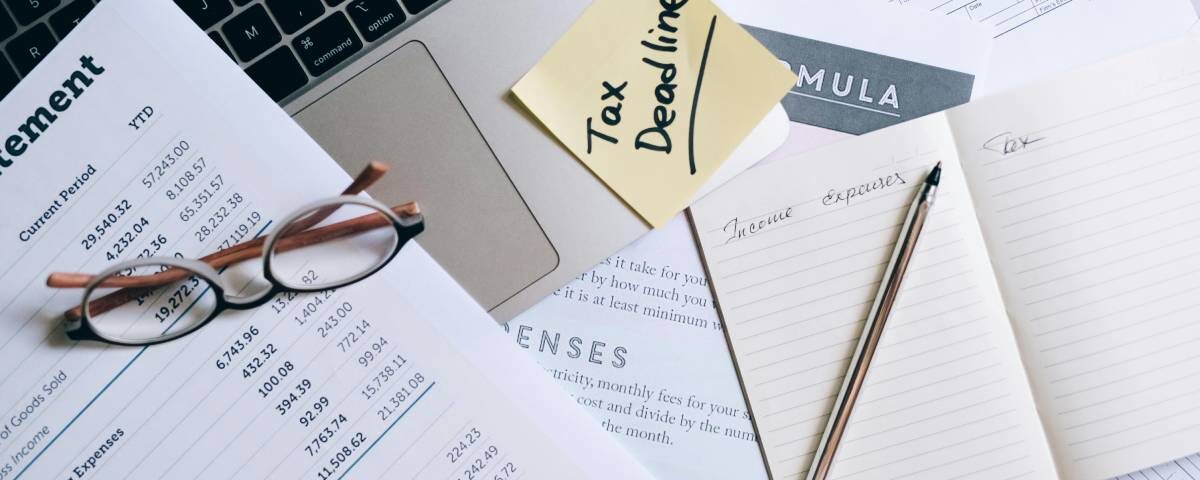 M
R
command
option
tement
YTD
Current Period
29,540.32 57,243.00
4,232.04 8,108.57
72.36 65,351.57
28,232.38
7,119.19
19,272.3
6,743.96 82
432.32 1,404.2
100.08 243.00
394.39 772.14
92.99 99.94
7,763.74 15,738.11
11,508.62 21,381.08
224.23
,242.49
6.72
of Goods Sold
ss Income
Expenses
Tax
Deadline
MULA
s it take for you
r by how much you
e it is at least minimum w
ENSES
ctricity, monthly fees for your s
cost and divide by the num
the month.
Income Expenses
Tax
Date